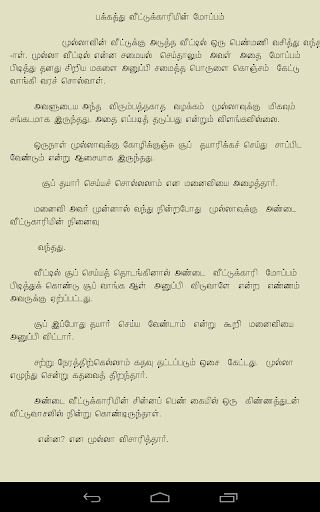 பக்கத்து வீட்டுக்காரியின் மோப்பம்
முல்லாவின் வீட்டுக்கு அருத்த வீட்டில் ஒரு பெண்மணி வசித்து வந்த
-ாள். முல்லா வீட்டில் என்ன சமையல் செய்தாலும் அவள் அதை மோப்பம்
பிடித்து தனது சிறிய மகளை அனுப்பி சமைத்த பொருளை கொஞ்சம் கேட்டு
வாங்கி வரச் சொல்வாள்.
அவளுடைய அந்த விரும்பத்தகாத வழக்கம் முல்லாவுக்கு மிகவும்
சங்கடமாக இருந்தது. அதை எப்படித் தடுப்பது என்றும் விளங்கவில்லை.
ஒருநாள் முல்லாவுக்கு கோழிக்குஞ்சு சூப் தயாரிக்கச் செய்து சாப்பிட
வேண்டும் என்று ஆசையாக இருந்தது.
சூப் தயார் செய்யச் சொல்லலாம் என மனைவியை அழைத்தார்.
மனைவி அவர் முன்னால் வந்து நின்றபோது முல்லாவுக்கு அண்டை
வீட்டுகாரியின் நினைவு
வந்தது.
வீட்டில் சூப் செய்யத் தொடங்கினால் அண்டை வீட்டுகாரி மோப்பம்
பிடித்துக் கொண்டு சூப் வாங்க ஆள் அனுப்பி விடுவாளே என்ற எண்ணம்
அவருக்கு ஏற்ப்பட்டது.
சூப் இப்போது தயார் செய்ய வேண்டாம் என்று கூறி மனைவியை
அனுப்பி விட்டார்.
சற்று நேரத்திற்கெல்லாம் கதவு தட்டப்படும் ஓசை கேட்டது. முல்லா
எழுந்து சென்று கதவைத் திறந்தார்.
அண்டை வீட்டுக்காரியின் சின்னப் பெண் கையில் ஒரு கிண்ணத்துடன்
வீட்டுவாசலில் நின்று கொண்டிருந்தாள்.
என்ன? என முல்லா விசாரித்தார்.